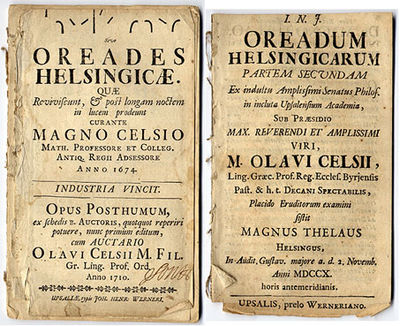 Sive
OREADES
HELSINGICÆ.
QUÆ
Reviviscunt, & post longam noctem
in lucem prodeunt
CURANTE
MAGNO CELSIO
MATH. PROFESSORE ET COLLEG.
ANTIQ. REGII ADSESSORE
ANNO 1674.
INDUSTRIA VINCIT.
OPUS POSTHUMUM,
ex schedis B. AUCTORIS, quotquot reperiri
potuere, nunc primum editum,
cum AUCTARIO
OLAVI CELSII M. FIL.
Gr. Ling. Prof. Ord.
Anno 1710.
UPSALIÆ, typis JOH. HENR. WERNERI.
I. N. J.
OREADUM
HELSINGICARUM
PARTEM SECUNDAM
Ex indultu Amplissimi Senatus Philos.
in incluta Upsaliensium Academia,
SUB PRÆSIDIO
MAX. REVERENDI ET AMPLISSIMI
VIRI,
M. OLAVI CELSII,
Ling. Græc. Prof. Reg. Eccles. Byrjensis
Past. & h. t. DECANI SPECTABILIS,
Placido Eruditorum examini
sistit
MAGNUS THELAUS
HELSINGUS,
In Audit. Gustav. majore a. d. 2. Novemb.
Anni MDCCX.
horis antemeridianis.
UPSALIS, prelo WERNERIANO.